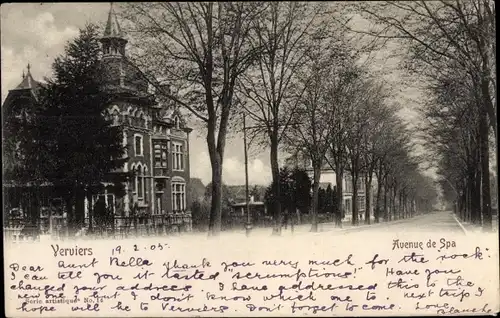 Verviers
19.2.05
Avenue de Spa
Dear Aunt Nella thank you very much for the rock.
I can tell you it tasted "scrumptious"! Have you
changed your address. I have addressed this to the
new one but I don't know which one to next trip I
Serie artistique No. 15
hope will be to Verviers. Don't forget to come. Blanche